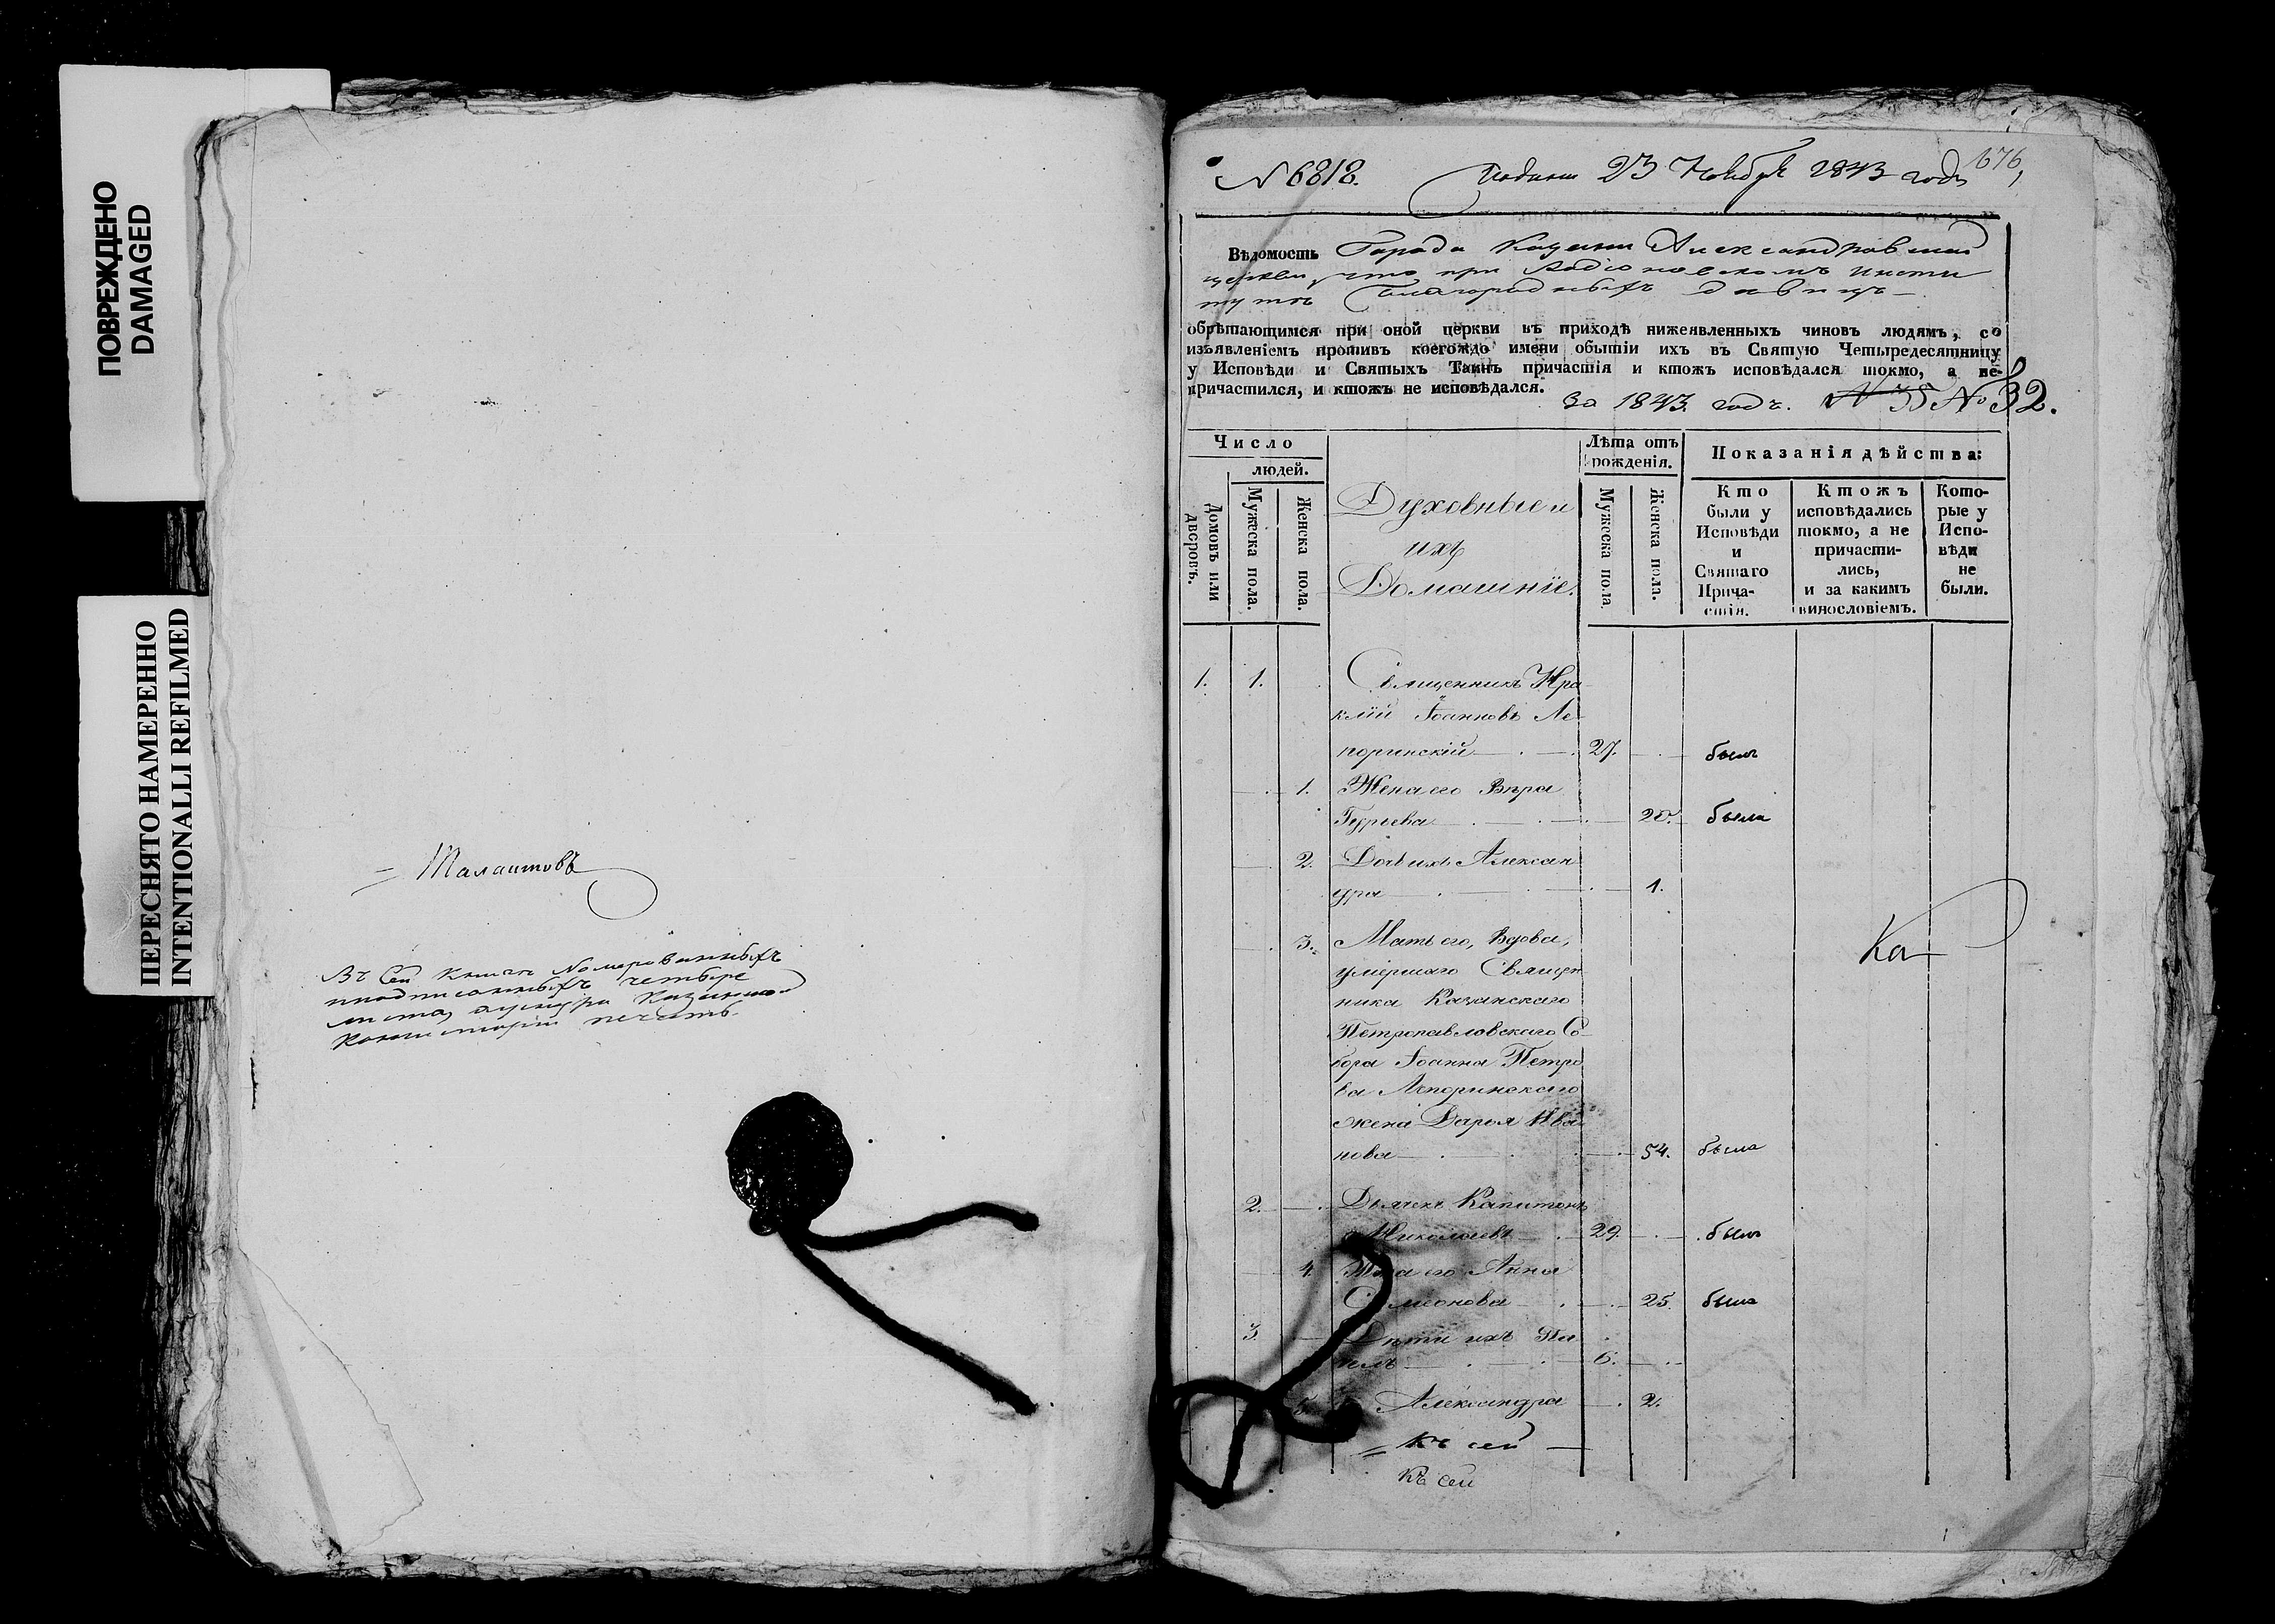 ПОВРЕЖДЕНО
DAMAGED
ПЕРЕСНЯТО НАМЕРЕННО
INTENTIONALLI REFILMED
Талантовъ
Въ Сей книгѣ Номерованныхъ
и подписанныхъ четыре
листа,
Консисторіи печать.
№ 6818. Подана 23 Ноября 1843 года
676
Вѣдомость Города Казани Александровской
церкви, что при Родіоновскомъ Инсти
тутѣ Благородныхъ дѣвицъ
обрѣтающимся при оной церкви въ приходѣ нижеявленныхъ чиновъ людямъ, со
изъявленіемъ противъ коегождо имени обытіи ихъ въ Святую Четыредесятницу
у Исповѣди и Святыхъ Таинъ причастія и ктожъ исповѣдался токмо, а не-
причастился, и ктожъ не исповѣдался.
За 1843 годъ. № 35 № 32.
Число
людей.
Домовъ или дворовъ.
Мужеска пола.
Женска пола.
Духовные и
ихъ
Домашніе.
Лѣта отъ
рожденія.
Мужеска пола.
Женска пола.
Показанія дѣйства:
Кто
были у
Исповѣди
и
Святаго
Прича-
стія.
Ктожъ
исповѣдались
токмо, а не
причасти-
лись,
и за какимъ
винословіемъ.
Кото-
рые у
Испо-
вѣди
не
были.
1. 1. Священникъ Ира
клій Іоанновъ Ле-
поринскій 27. былъ
1. Жена его Вѣра
Гурьева 20. была
2. Дочь ихъ Алексан
дра 1.
3. Мать его, вдова,
умершаго Священ
ника Казанскаго
Петропавловскаго Со-
бора Іоанна Петро
ва Лепоринскаго
жена Дарья Ива
нова 54. была
Ка
2. Дьячекъ Капитонъ
Николаевъ 29. былъ
4. Жена его Анна
Симеонова 25. была
3. Дѣти ихъ Па
велъ 6.
5. Александра 2.
Къ сей
Къ сей